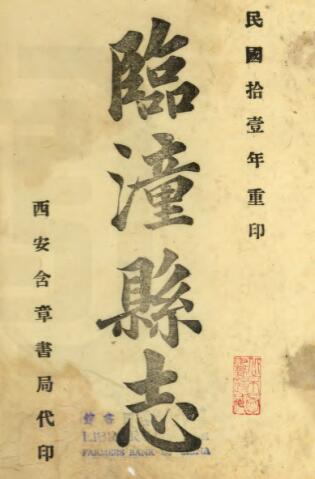 民國拾壹年重印
臨潼縣志
西安含章書局代印
LIBR
FARMERS BANK OF CHINA